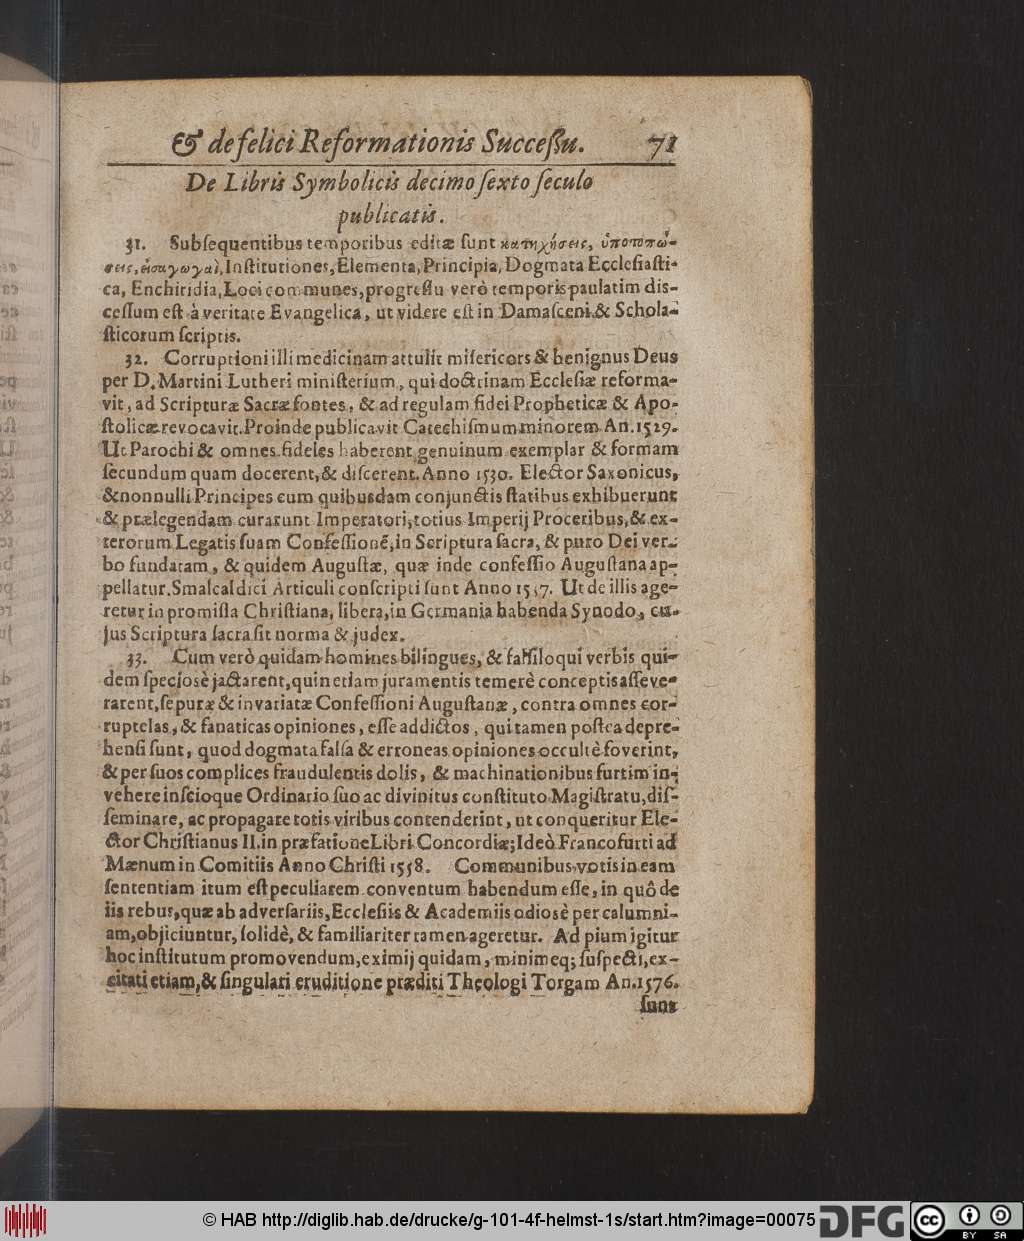 & de felici Reformationis Succeſſu. 71
De Libris Symbolicis decimo ſexto ſeculo
publicatis.
31. Subſequentibus temporibus editæ ſunt κατηχήσεις, ὑποτυπώ-
σεις, εἰσαγωγαὶ, Inſtitutiones, Elementa, Principia, Dogmata Eccleſiaſti-
ca, Enchiridia, Loci communes, progreſſu verò temporis paulatim dis-
ceſſum eſt à veritate Evangelica, ut videre eſt in Damaſceni & Schola-
ſticorum ſcriptis.
32. Corruptioni illi medicinam attulit miſericors & benignus Deus
per D. Martini Lutheri miniſterium, qui doctrinam Eccleſiæ reforma-
vit, ad Scripturæ Sacræ fontes, & ad regulam fidei Propheticæ & Apo-
ſtolicæ revocavit. Proinde publicavit Catechiſmum minorem An. 1529.
Ut Parochi & omnes fideles haberent genuinum exemplar & formam
ſecundum quam docerent, & diſcerent. Anno 1530. Elector Saxonicus,
& nonnulli Principes cum quibusdam conjunctis ſtatibus exhibuerunt
& prælegendam curarunt Imperatori, totius Imperij Proceribus, & ex-
terorum Legatis ſuam Confeſſionē, in Scriptura ſacra, & puro Dei ver-
bo fundatam, & quidem Auguſtæ, quæ inde confeſſio Auguſtana ap-
pellatur. Smalcaldici Articuli conſcripti ſunt Anno 1537. Ut de illis age-
retur in promiſſa Chriſtiana, libera, in Germania habenda Synodo, cu-
jus Scriptura ſacra ſit norma & judex.
33. Cum verò quidam homines bilingues, & falſiloqui verbis qui-
dem ſpeciosè jactarent, quin etiam juramentis temerè conceptis aſſeve-
rarent, ſe puræ & invariatæ Confeſſioni Auguſtanæ, contra omnes cor-
ruptelas, & fanaticas opiniones, eſſe addictos, qui tamen poſtea depre-
henſi ſunt, quod dogmata falſa & erroneas opiniones occultè foverint,
& per ſuos complices fraudulentis dolis, & machinationibus furtim in-
vehere inſcioque Ordinario ſuo ac divinitus conſtituto Magiſtratu, diſ-
ſeminare, ac propagare totis viribus contenderint, ut conqueritur Ele-
ctor Chriſtianus II. in præfatione Libri Concordiæ; Ideò Francofurti ad
Mænum in Comitiis Anno Chriſti 1558. Communibus votis in eam
ſententiam itum eſt peculiarem conventum habendum eſſe, in quô de
iis rebus, quæ ab adverſariis, Eccleſiis & Academiis odiosè per calumni-
am, objiciuntur, ſolidè, & familiariter tamen ageretur. Ad pium igitur
hoc inſtitutum promovendum, eximij quidam, minimeq; ſuſpecti, ex-
citati etiam, & ſingulari eruditione præditi Theologi Torgam An. 1576.
ſunt
© HAB http://diglib.hab.de/drucke/g-101-4f-helmst-1s/start.htm?image=00075
DFG
cc
BY SA